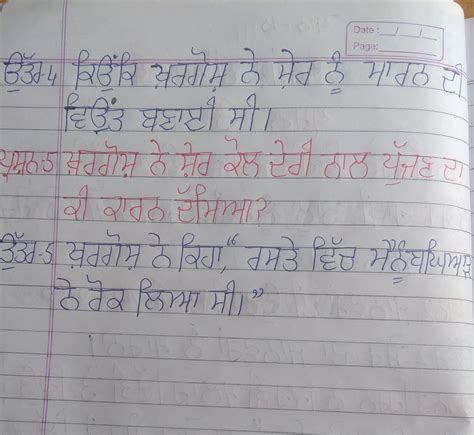 Date : __/__/__
Page:
ਉੱਤਰ-4 ਕਿਉਂਕਿ ਖ਼ਰਗੋਸ਼ ਨੇ ਸ਼ੇਰ ਨੂੰ ਮਾਰਨ ਦੀ
ਵਿਉਂਤ ਬਣਾਈ ਸੀ।
ਪ੍ਰਸ਼ਨ-5 ਖ਼ਰਗੋਸ਼ ਨੇ ਸ਼ੇਰ ਕੋਲ ਦੇਰੀ ਨਾਲ ਪੁੱਜਣ ਦਾ
ਕੀ ਕਾਰਨ ਦੱਸਿਆ?
ਉੱਤਰ-5 ਖ਼ਰਗੋਸ਼ ਨੇ ਕਿਹਾ, “ ਰਸਤੇ ਵਿੱਚ ਮੈਨੂੰ
ਨੇ ਰੋਕ ਲਿਆ ਸੀ।”